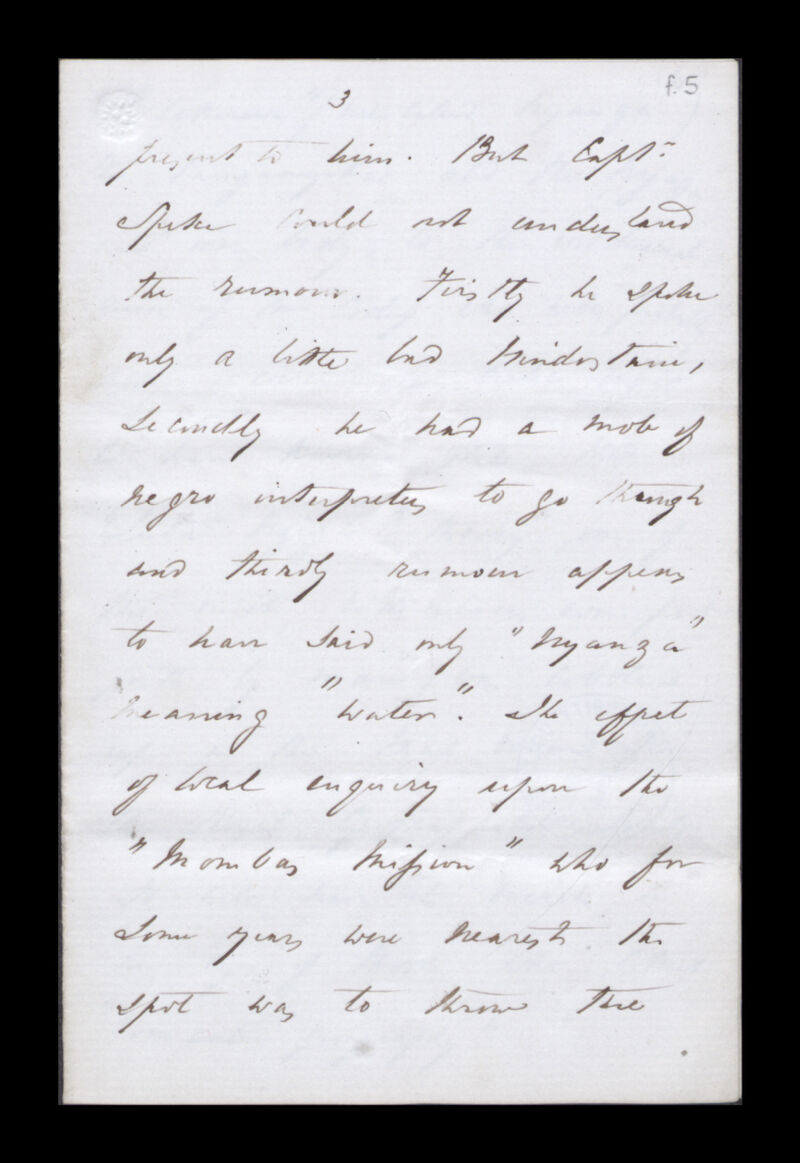 3
f.5
present to him. But Capt.n
Speke could not understand
the rumour. Firstly he spoke
only a little bad Hindostani,
secondly he had a mob of
negro interpreters to go through
and thirdly rumour appears
to have said only "Nyanza"
meaning "water". The effect
of local enquiry upon the
"Mombas Mission" who for
some years were nearest the
spot was to throw the